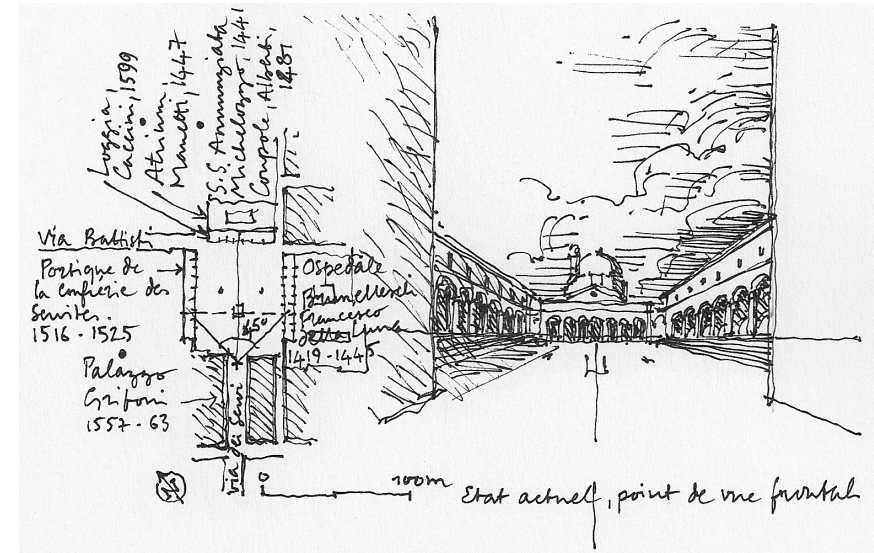 Loggia,
Caccini, 1599
Atrium,
Manetti, 1447
S.S. Annunziata
Michelozzo, 1441
Coupole, Alberti,
1481
Via Battisti
Portique de
la confrérie des
Servites.
1516-1525
Ospedale
Brunelleschi
Francesco
della Luna
1419-1445
45°
Palazzo
Grifoni
1557-63
via dei Servi
0
100m
Etat actuel, point de vue frontal